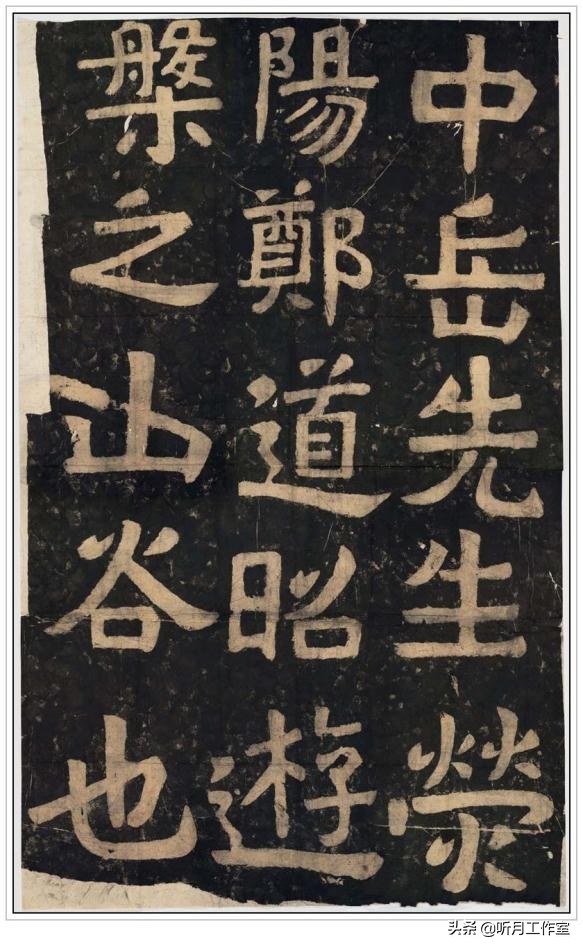 中岳先生荧
陽鄭道昭遊
槃之山谷也
头条 @听月工作室